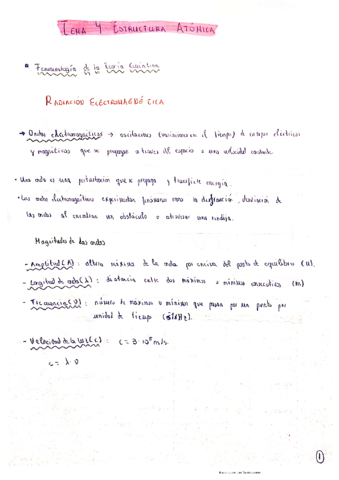 TEMA 4 ESTRUCTURA ATÓMICA
Fenomenología de la Teoría Cuántica
RADIACIÓN ELECTROMAGNÉTICA
→ Ondas electromagnéticas → oscilaciones (variaciones en el tiempo) de campos eléctricos
y magnéticos que se propagan a través del espacio a una velocidad constante.
· Una onda es una perturbación que se propaga y transfiere energía.
· Las ondas electromagnéticas experimentan fenómenos como la difracción, desviación de
las ondas al encontrar un obstáculo o atravesar una rendija.
Magnitudes de las ondas
- Amplitud (A) : altura máxima de la onda por encima del punto de equilibrio (U).
- Longitud de onda (λ) : distancia entre dos máximos o mínimos consecutivos (m)
- Frecuencia (ν) : número de máximos o mínimos que pasan por un punto por
unidad de tiempo
- Velocidad de la luz (c) : c = 3·10⁸ m/s
c = λ·ν
1